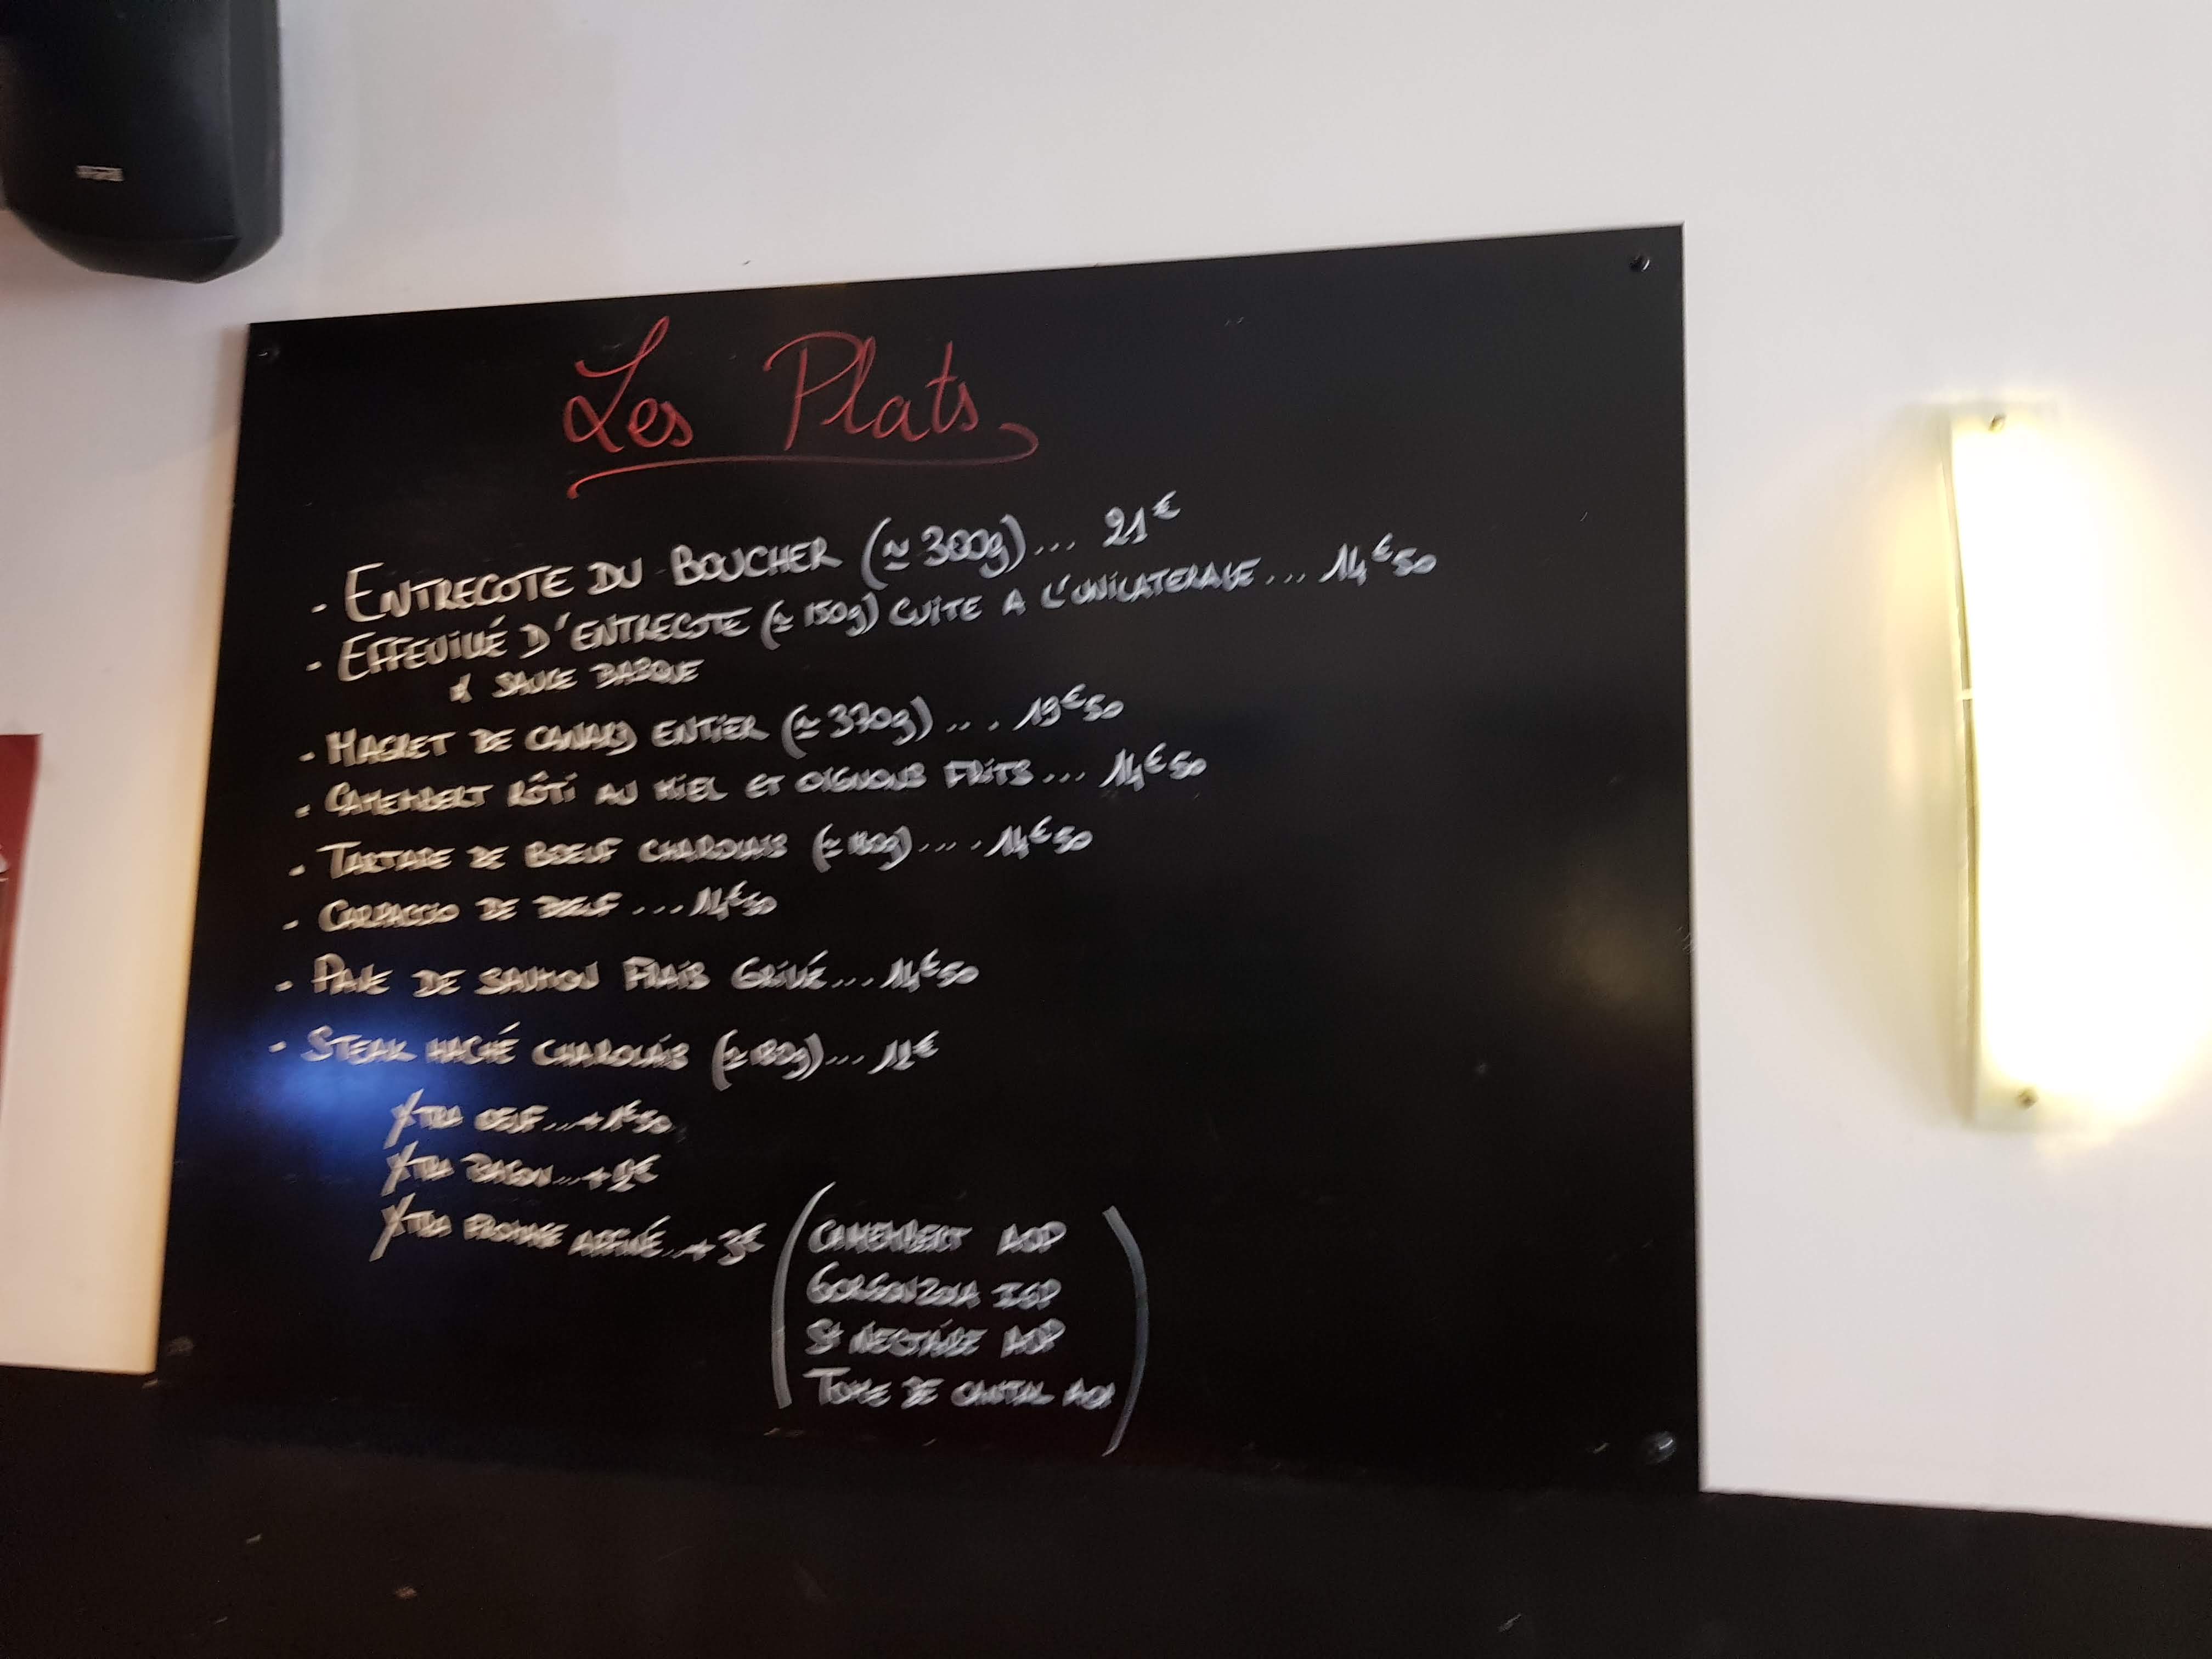 Les Plats
- ENTRECOTE DU BOUCHER (≃ 300g)... 21€
- EFFEUILLÉ D'ENTRECOTE (≃ 150g) CUITE A L'UNILATERALE... 14€50
& SAUCE BASQUE
- MAGRET DE CANARD ENTIER (≃ 370g)... 19€50
- CAMEMBERT RÔTI AU MIEL ET OIGNONS FRITS... 14€50
- TARTARE DE BOEUF CHAROLAIS (≃ 180g)..... 14€50
- CARPACCIO DE BOEUF... 14€50
- PAVE DE SAUMON FRAIS GRILLÉ... 14€50
- STEAK HACHÉ CHAROLAIS (≃ 180g)... 12€
XTRA OEUF...+ 1€50
XTRA BACON...+ 2€
XTRA FROMAGE AFFINÉ..+ 3€ (CAMEMBERT AOP
GORGONZOLA IGP
St NECTAIRE AOP
TOME DE CANTAL)